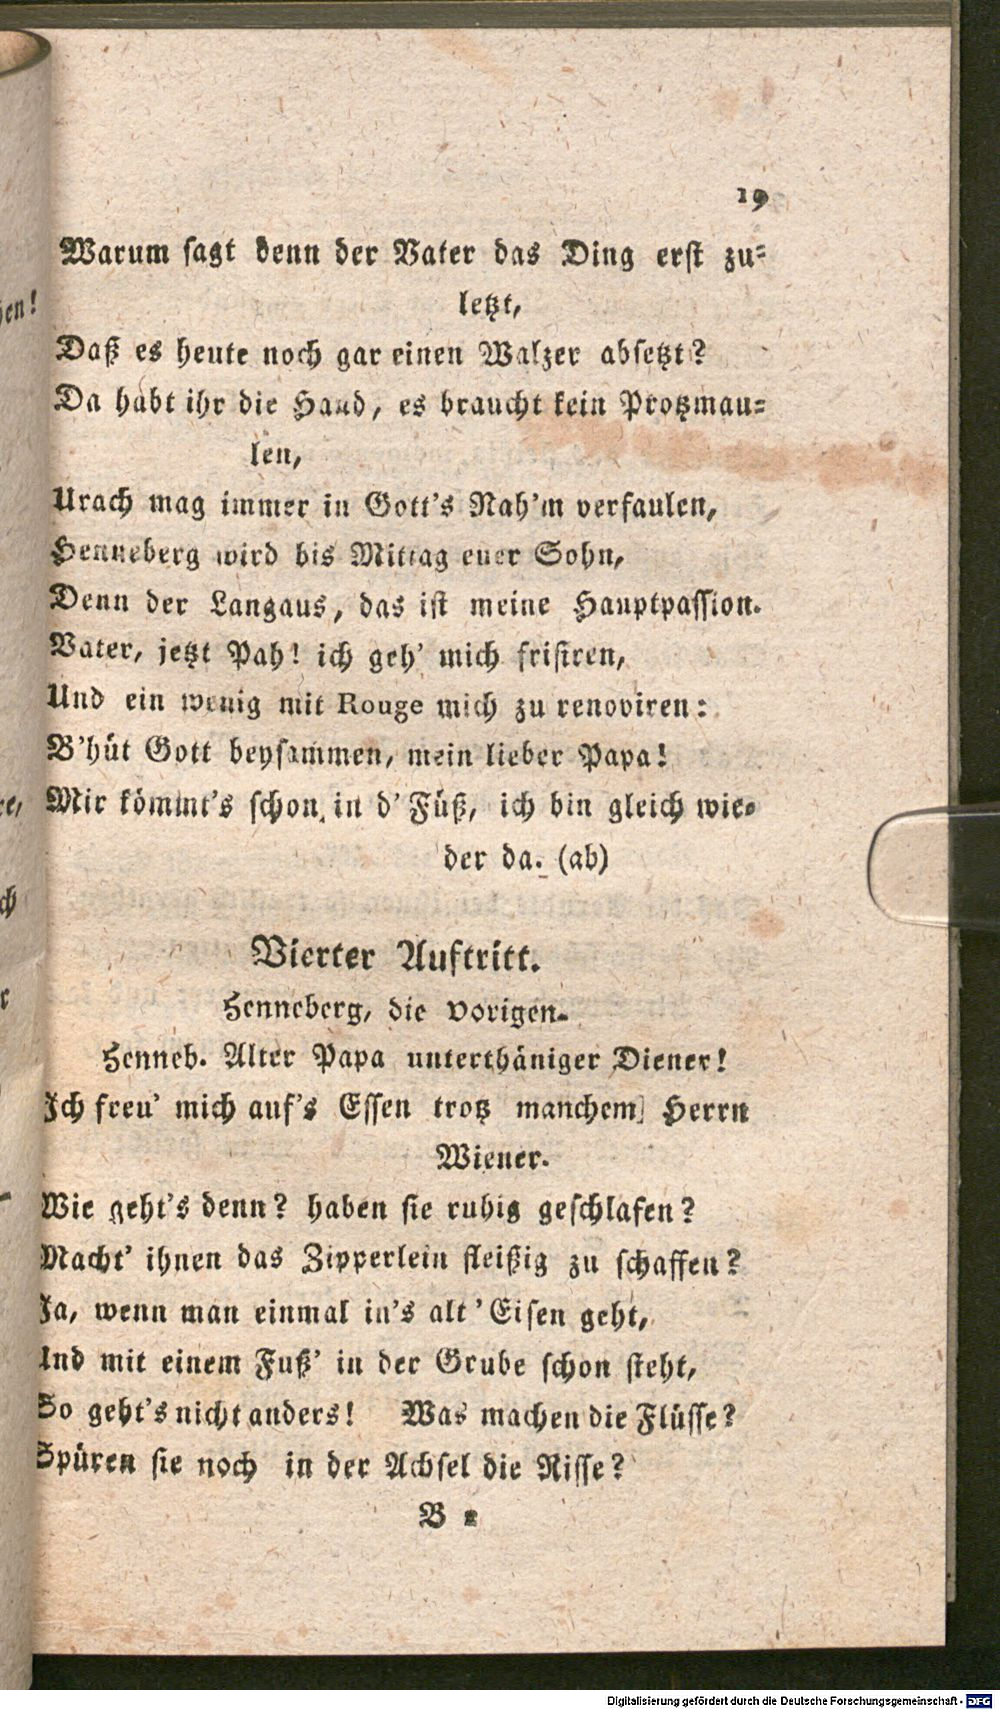 19
Warum sagt denn der Vater das Ding erst zu-
letzt,
Daß es heute noch gar einen Walzer absetzt?
Da habt ihr die Hand, es braucht kein Protzmau-
len,
Urach mag immer in Gott's Nah'm verfaulen,
Henneberg wird bis Mittag euer Sohn,
Denn der Langaus, das ist meine Hauptpassion.
Vater, jetzt Pah! ich geh' mich frisiren,
Und ein wenig mit Rouge mich zu renoviren:
B'hüt Gott beysammen, mein lieber Papa!
Mir kömmt's schon in d' Füß, ich bin gleich wie-
der da. (ab)
Vierter Auftritt.
Henneberg, die vorigen.
Henneb. Alter Papa unterthäniger Diener!
Ich freu' mich auf's Essen trotz manchem Herrn
Wiener.
Wie geht's denn? haben sie ruhig geschlafen?
Macht' ihnen das Zipperlein fleißig zu schaffen?
Ja, wenn man einmal in's alt' Eisen geht,
Und mit einem Fuß' in der Grube schon steht,
So geht's nicht anders! Was machen die Flüsse?
Spüren sie noch in der Achsel die Risse?
B 2
Digitalisierung gefördert durch die Deutsche Forschungsgemeinschaft - DFG